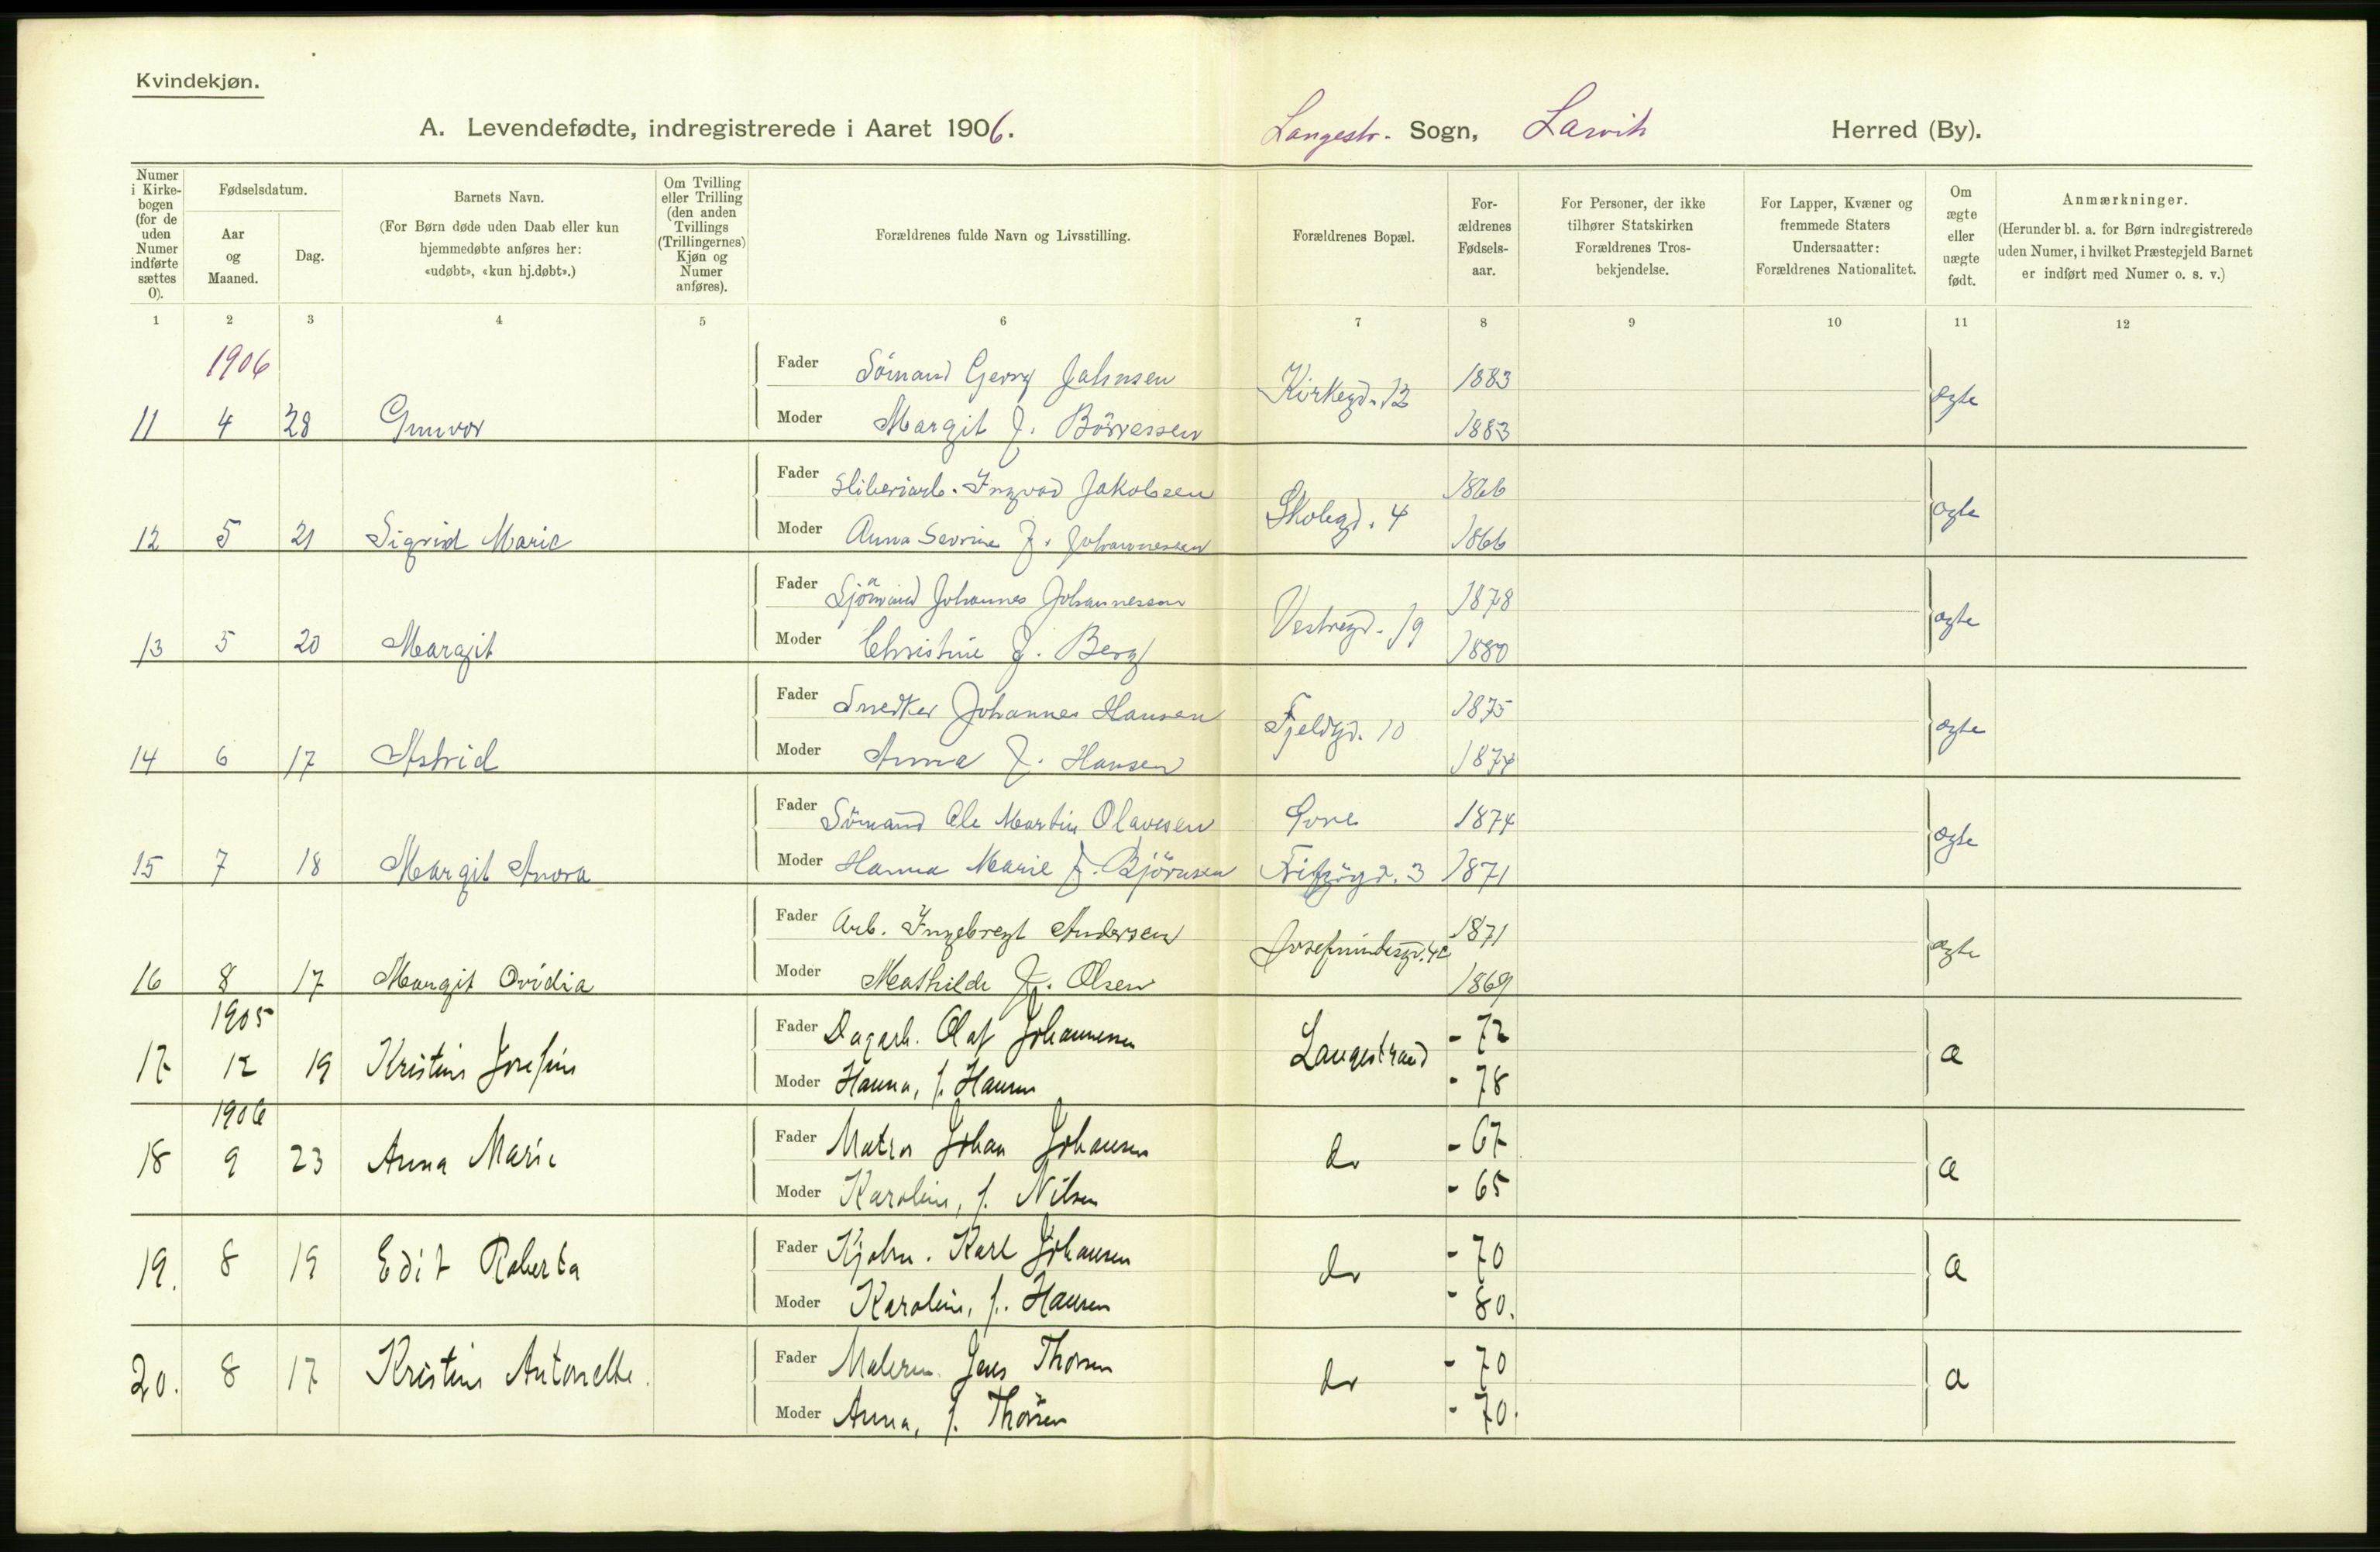 Kvindekjøn.
A. Levendefødte, indregistrerede i Aaret 1906. Langestr. Sogn, Larvik Herred (By).
Numer i Kirke-bogen (for de uden Numer indførte sættes 0).
Fødselsdatum.
Aar og Maaned.
Dag.
Barnets Navn.
(For Børn døde uden Daab eller kun hjemmedøbte anføres her: «udøbt», «kun hj.døbt».)
Om Tvilling eller Trilling (den anden Tvillings (Trillingernes) Kjøn og Numer anføres).
Forældrenes fulde Navn og Livsstilling.
Forældrenes Bopæl.
For-ældrenes Fødsels-aar.
For Personer, der ikke tilhører Statskirken Forældrenes Tros-bekjendelse.
For Lapper, Kvæner og fremmede Staters Undersaatter: Forældrenes Nationalitet.
Om ægte eller uægte født.
Anmærkninger.
(Herunder bl. a. for Børn indregistrerede uden Numer, i hvilket Præstegjeld Barnet er indført med Numer o. s. v.)
1 2 3 4 5 6 7 8 9 10 11 12
1906
Fader Sömand Georg Jahnsen Kirkegd. 12 1883 ægte
11 4 28 Gunvor Moder Margit f. Börresen 1883
Fader Sliberiarb. Ingvad Jakobsen Skolegd. 4 1866 ægte
12 5 21 Sigrid Marie Moder Anna Sevrine f. Johannesen 1866
Fader Sjömand Johannes Johannesen Vestregd. 19 1878 ægte
13 5 20 Margit Moder Christine f. Berg 1880
Fader Snedker Johannes Hansen Fjeldgd. 10 1875 ægte
14 6 17 Astrid Moder Anna f. Hansen 1874
Fader Sömand Ole Martin Olavesen 1874 ægte
15 7 18 Margit Anora Moder Hanna Marie f. Björnsen 3 1871
Fader Arb. Ingebregt Andersen 1871 ægte
16 8 17 Margit Ovidia Moder Mathilde f. Olsen 1869
1905
Fader Dagarb. Olaf Johannesen Langestrand - 72 æ
17 12 19 Kristine Josefine
Moder Hanna, f. Hansen - 78
1906
Fader Matros Johan Johansen do - 67 æ
18 9 23 Anna Marie
Moder Karoline, f. Nilsen - 65
Fader Karl Johansen do - 70 æ
19. 8 19 Edit Roberta
Moder Karoline, f. Hansen - 80.
Fader Jens Thorsen do - 70 æ
20. 8 17 Kristine Antonette.
Moder Anna, f. Thorsen - 70.